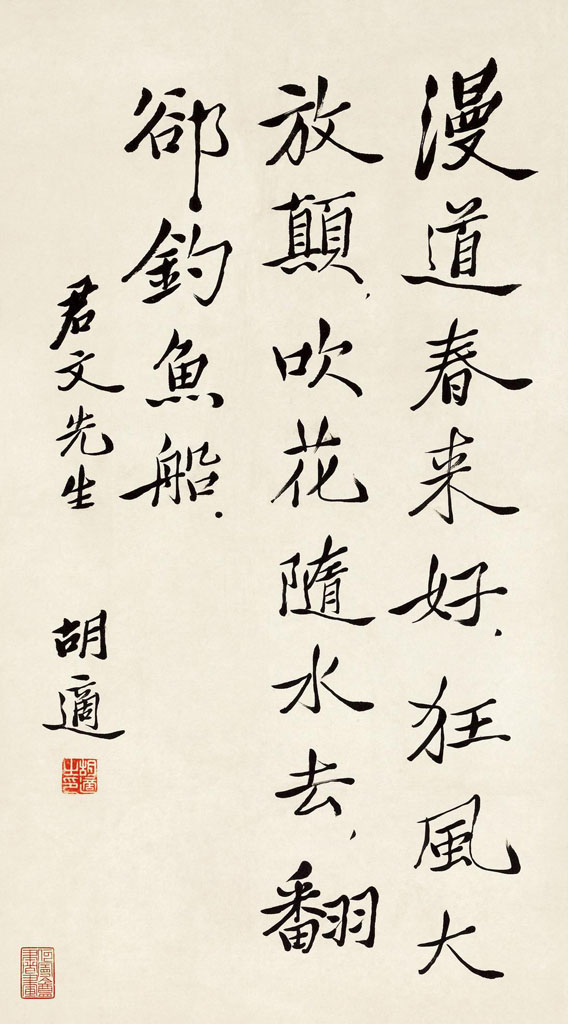 漫道春来好,狂風大
放顛,吹花隨水去,翻
郤釣魚船.
君文先生 胡適
胡適之印